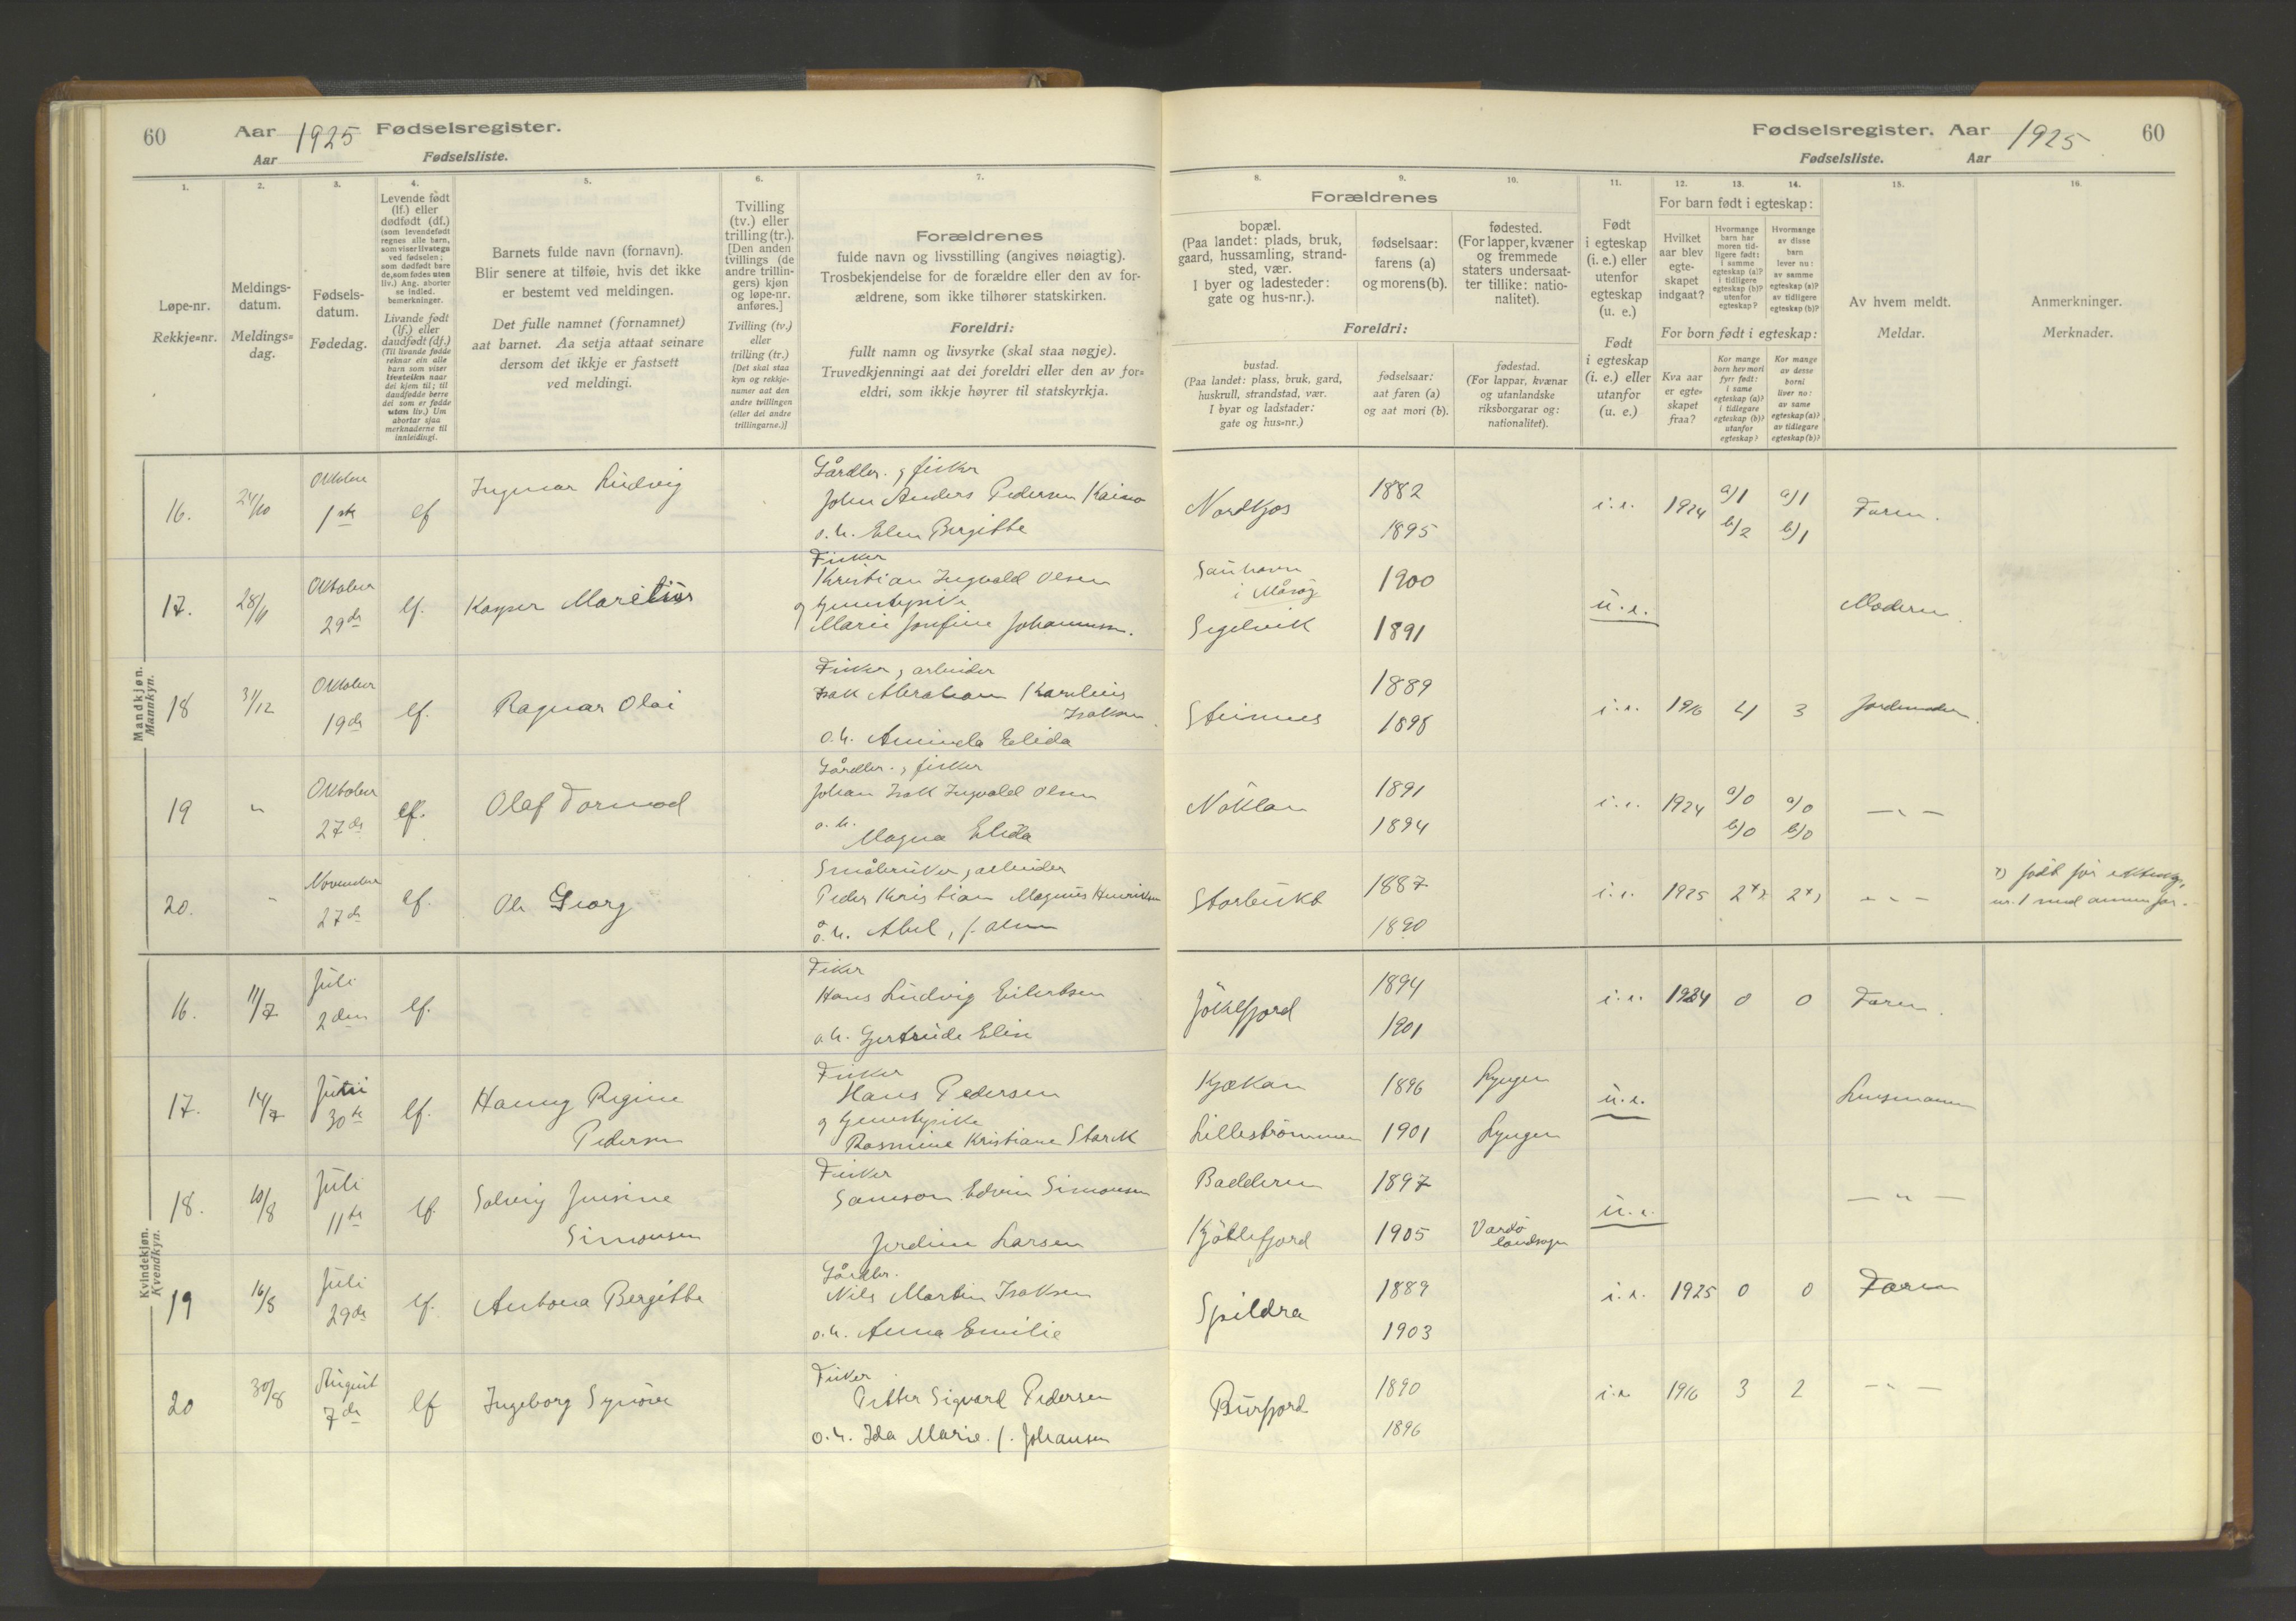 60
Aar 1925 Fødselsregister.
Aar
Fødselsliste.
Fødselsregister. Aar 1925
60
Fødselsliste.
Aar
1.
2.
3.
4.
5.
6.
7.
8.
9.
10.
11.
12.
13.
14.
15.
16.
Løpe-nr.
Rekkje=nr.
Meldings-
datum.
Meldings=
dag.
Fødsels-
datum.
Fødedag.
Levende født
(lf.) eller
dødfødt (df.)
(som levendefødt
regnes alle barn,
som viser livstegn
ved fødselen;
som dødfødt bare
de, som fødes uten
liv.) Ang. aborter
se indled.
bemerkninger.
Livande født
(lf.) eller
daudfødt (df.)
(Til livande fødde
reknar ein alle
barn som viser
livsteikn naar
dei kjem til; til
daudfødde berre
dei som er fødde
utan liv.) Um
abortar sjaa
merknaderne til
innleidingi.
Barnets fulde navn (fornavn).
Blir senere at tilføie, hvis det ikke
er bestemt ved meldingen.
Det fulle namnet (fornamnet)
aat barnet. Aa setja attaat seinare
dersom det ikkje er fastsett
ved meldingi.
Tvilling
(tv.) eller
trilling (tr.).
[Den anden
tvillings (de
andre trillin-
gers) kjøn
og løpe-nr.
anføres.]
Tvilling (tv.)
eller
trilling (tr.)
[Det skal staa
kyn og rekkje-
numer aat den
andre tvillingen
(eller dei andre
trillingarne.)]
Forældrenes
fulde navn og livsstilling (angives nøiagtig).
Trosbekjendelse for de forældre eller den av for-
ældrene, som ikke tilhører statskirken.
Foreldri:
fullt namn og livsyrke (skal staa nøgje).
Truvedkjenningi aat dei foreldri eller den av for=
eldri, som ikkje høyrer til statskyrkja.
Forældrenes
bopæl.
(Paa landet: plads, bruk,
gaard, hussamling, strand-
sted, vær.
I byer og ladesteder:
gate og hus-nr.).
fødselsaar:
farens (a)
og morens (b).
fødested.
(For lapper, kvæner
og fremmede
staters undersaat-
ter tillike: natio-
nalitet).
Foreldri:
bustad.
(Paa landet: plass, bruk, gard,
huskrull, strandstad, vær.
I byar og ladstader:
gate og hus=nr.)
fødselsaar:
aat faren (a)
og aat mori (b).
fødestad.
(For lappar, kvænar
og utanlandske
riksborgarar og:
nationalitet).
Født
i egteskap
(i. e.) eller
utenfor
egteskap
(u. e.)
Født
i egteskap
(i. e.) eller
utanfor
(u. e.)
For barn født i egteskap:
Hvilket
aar blev
egte-
skapet
indgaat?
Hvormange
barn har
moren tid-
ligere født:
i samme
egteskap (a)?
i tidligere
egteskap (b)?
utenfor
egteskap?
Hvormange
av disse
barn
lever nu:
av samme
egteskap (a)?
av tidligere
egteskap (b)?
For born født i egteskap:
Kva aar
er egte-
skapet
fraa?
Kor mange
born hev mori
fyrr født:
i same
egteskap (a)?
i tidlegare
egteskap (b)?
utanfor
egteskap?
Kor mange
av desse
borni
liver no:
av same
egteskap (a)?
av tidlegare
egteskap (b)?
Av hvem meldt.
Meldar.
Anmerkninger.
Merknader.
Mandkjøn.
Mannkyn.
16. 24/10 Oktober 1ste lf Ingmar Ludvig
Gårdbr. , fisker
John Anders Pedersen Kaino
o. h. Elen Bergitte
Nordkjos 1882 1895 i. e. 1924 a)1 b)2 a)1 b)1 Faren.
17. 28/11 Oktober 29de lf. Kasper Maretius
Fisker
Kristian Ingvald Olsen
og tjenestepike
Marie Josefine Johannesen.
i Måsøy 1900
Segelvik 1891 u. e. Moderen
18 31/12 Oktober 19de lf. Ragnar Olai
Fisker, arbeider
Isak Abraham Kornelius
Isaksen
o. h. Aminda Elida
Steinnes 1889 1898 i. e. 1916 4 3 Jordmoder.
19 " Oktober 27de lf. Olaf Tormod
Gårdbr. , fisker
Johan Isak Ingvald Olsen
o. h.
Magna Elida
Nöklan 1891 1894 i. e. 1924 a)0 b)0 a)0 b)0 — " —
20. " November 27de lf. Ole Georg
Småbruker, arbeider
Peder Kristian Magnus Henriksen
o. h. Abel, f. Olsen
Storbukt 1887 1890 i. e. 1925 2x) 2x) — " — x) født før ektesk.,
nr. 1 med annen far.
Kvindekjøn.
Kvendkyn.
16. 11/7 Juli 2den lf.
Fisker
Hans Ludvig Eilertsen
o. h. Gjertrude Elin
Jökelfjord 1894 1901 i. e. 1924 0 0 Faren.
17. 14/7 Juni 30te lf. Hanny Regine
Pedersen
Fisker
Hans Pedersen
og tjenestepike
Rasmine Kristiane Storck
Kjækan 1896 Lyngen
Lilleströmmen 1901 Lyngen u. e. Lensmannen
18. 10/8 Juli 11te lf. Solveig Jensine
Simonsen
Fisker
Samson Edvin Simonsen
Jordine Larsen
Badderen 1897
Kjöllefjord 1905 Vardö
landsogn u. e. — " —
19 16/8 Juli 29de lf. Antona Bergitte
Gårdbr.
Nils Martin Isaksen
o. h. Anna Emilie
Spildra 1889 1903 i. e. 1925 0 0 Faren
20 30/8 August 7de lf Ingeborg Synöve
Fisker
Petter Sigvard Pedersen
o. h. Ida Marie f. Johansen
Burfjord 1890 1896 i. e 1916 3 2 — " —